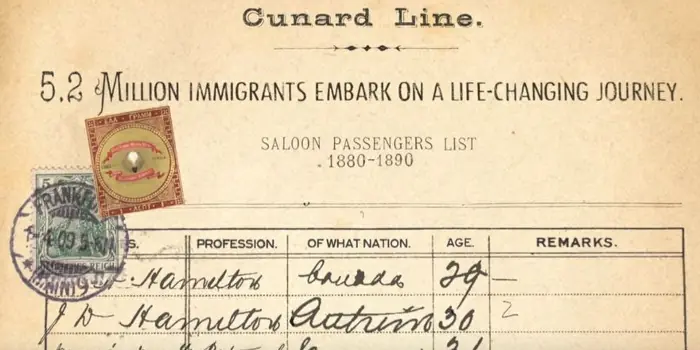 Cunard Line.
5.2 MILLION IMMIGRANTS EMBARK ON A LIFE-CHANGING JOURNEY.
SALOON PASSENGERS LIST
1880-1890
FRANKFURT
S. PROFESSION. OF WHAT NATION. AGE. REMARKS.
Hamilton Canada 29 —
J D Hamilton 30 2